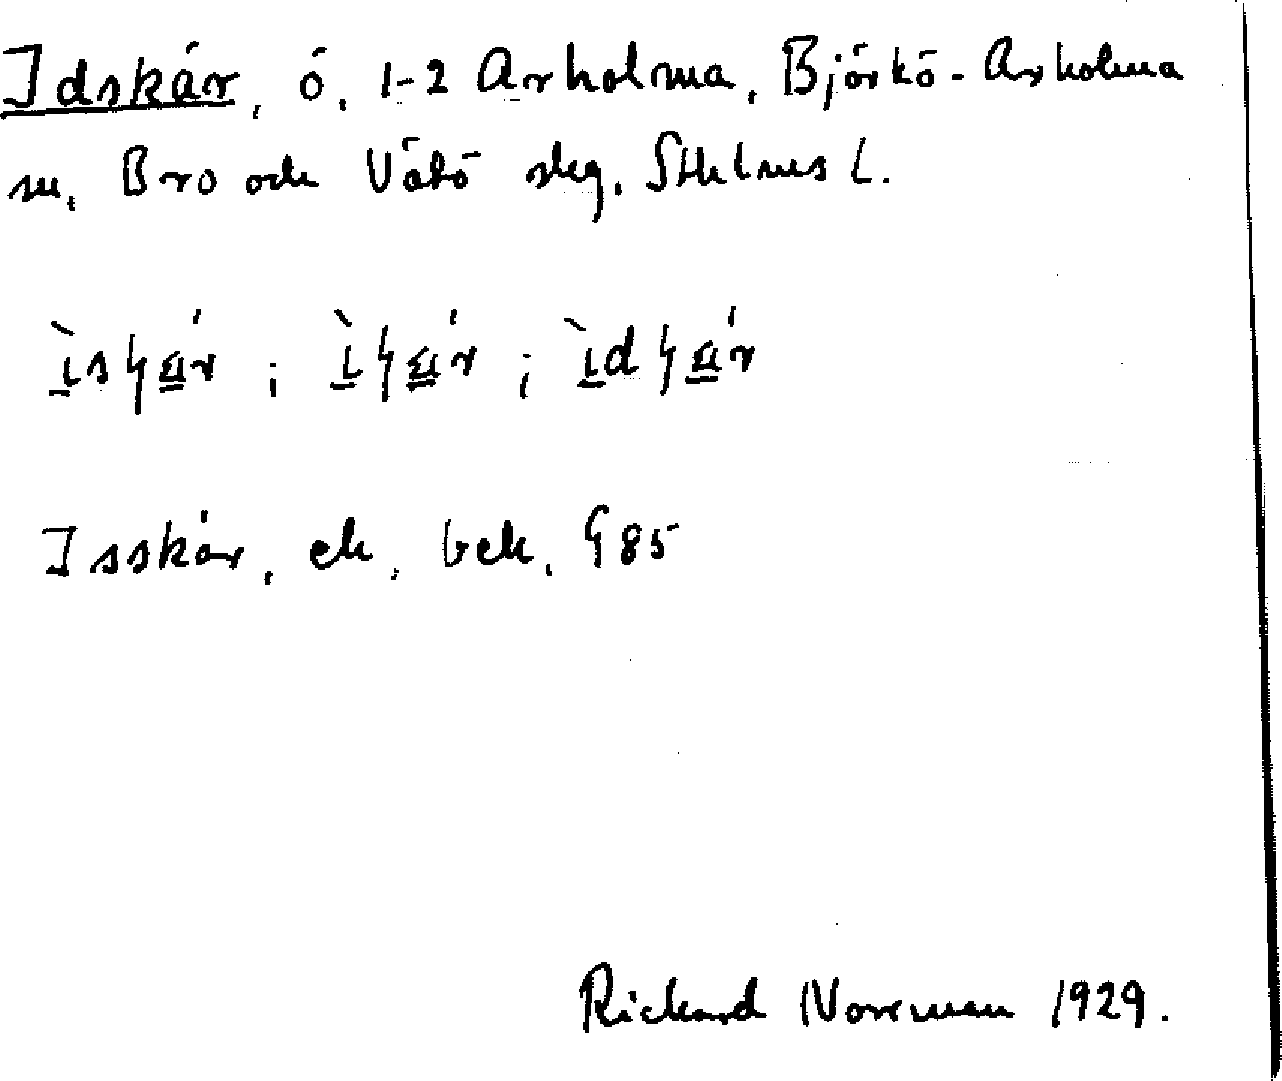 Idskär, ö, 1-2 Arholma, Björkö-Arholma
sn, Bro och Vätö skg, Sthlms l.
Isskär, ek. bek. § 85
Rickard Noreman 1929.